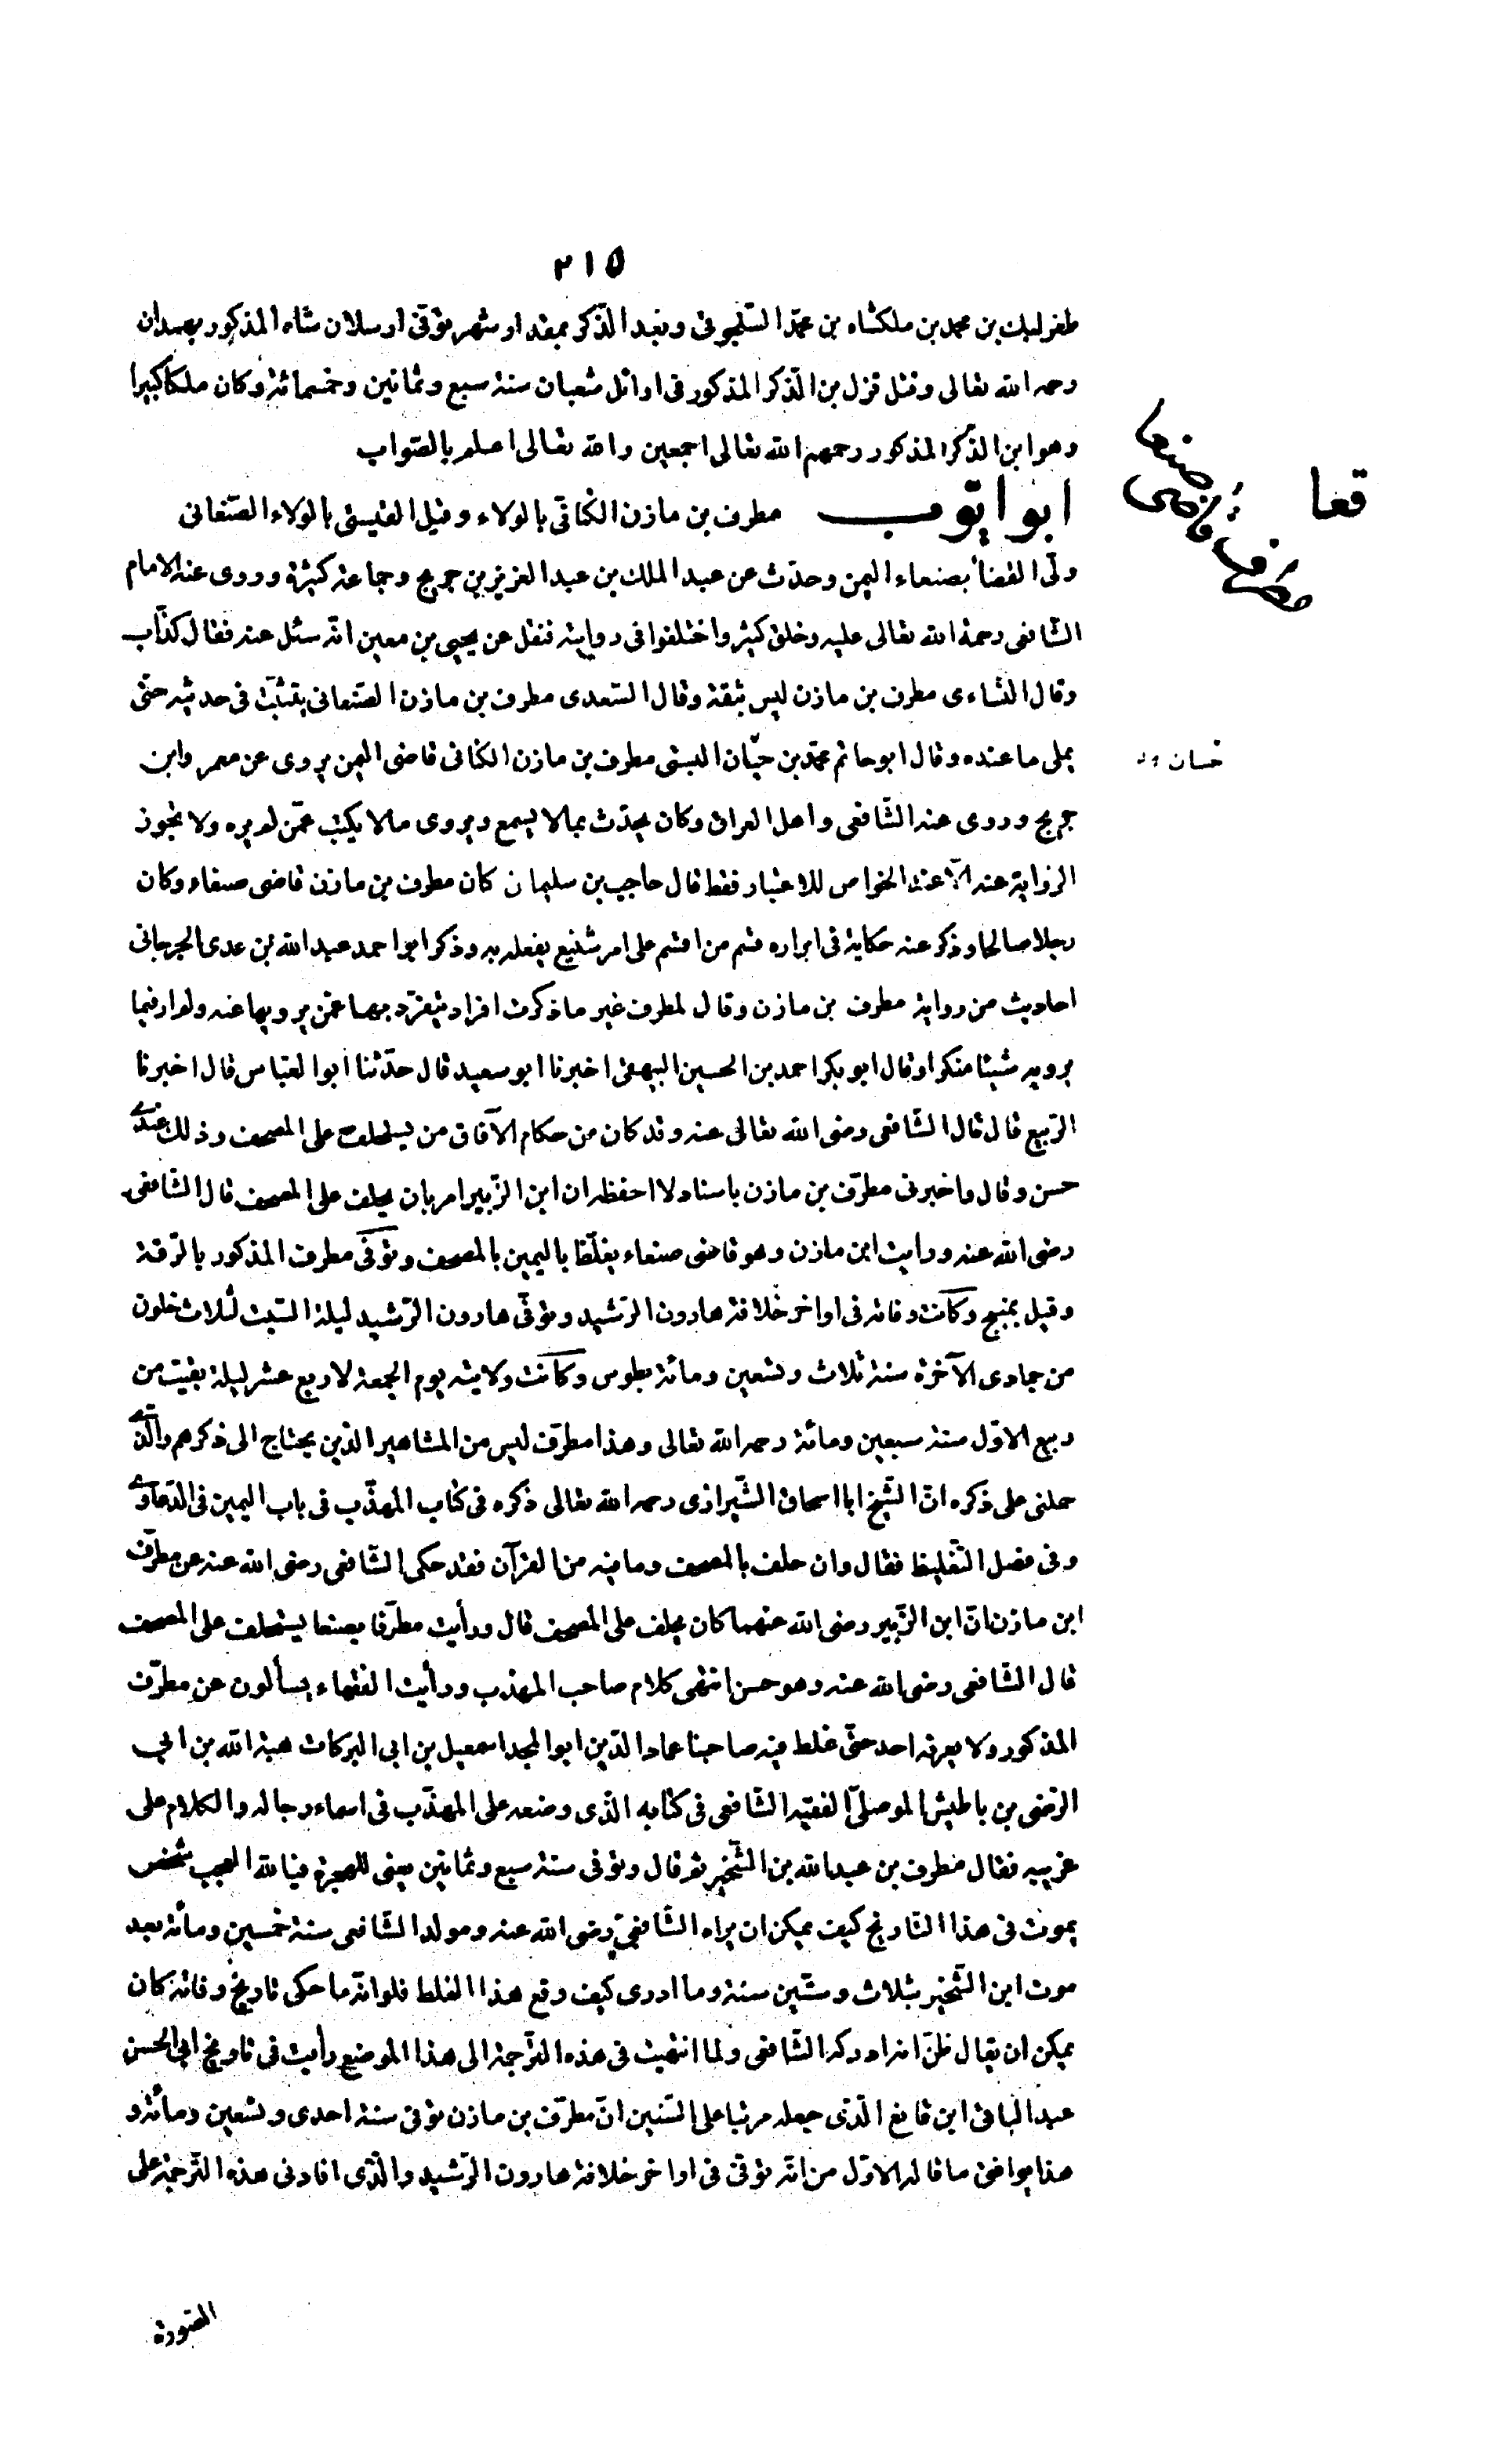 ٢١٥
طغرلبك بن محمد بن ملكشاه بن محمد السلجوقى وبعد الذكر بمقدار شهر توفى ارسلان شاه المذكور بهمدان
رحمه الله تعالى وقتل قزل بن الدكز المذكور فى اوائل شعبان سنة سبع وثمانين وخمسمائة وكان ملكا كبيرا
وهو ابن الدكز المذكور رحمهم الله تعالى اجمعين والله تعالى اعلم بالصواب
ابو ايوب مطرف بن مازن الكنانى بالولاء وقيل القيسى بالولاء الصنعانى
قعا
مطرف قاضى صنعا
ولى القضأ بصنعاء اليمن وحدث عن عبد الملك بن عبد العزيز بن جريج وجماعة كثيرة وروى عنه الامام
الشافعى رحمة الله تعالى عليه وخلق كثير واختلفوا فى روايته فنقل عن يحيى بن معين انه سئل عنه فقال كذاب
وقال النساءى مطرف بن مازن ليس بثقة وقال السعدى مطرف بن مازن الصنعانى يتثبت فى حديثه حتى
يملى ما عنده وقال ابو حاتم محمد بن حبان البستى مطرف بن مازن الكنانى قاضى اليمن يروى عن معمر وابن
جريج وروى عنه الشافعى واهل العراق وكان يحدث بمالا يسمع ويروى مالا يكتب عمن لم يره ولا تجوز
الرواية عنه الا عند الخواص للاعتبار فقط قال حاجب بن سليمان كان مطرف بن مازن قاضى صنعاء وكان
رجلا صالحا وذكر عنه حكاية فى ابراره قسم من اقسم على امر شنيع يفعله به وذكر ابو احمد عبد الله بن عدى الجرجانى
احاديث من رواية مطرف بن مازن وقال لمطرف غير ما ذكرت افراد يتفرد بها عمن يرويها عنه ولم ار فيما
يرويه شيئا منكرا وقال ابو بكر احمد بن الحسين البيهقى اخبرنا ابو سعيد قال حدثنا ابو العباس قال اخبرنا
الربيع قال قال الشافعى رضى الله تعالى عنه وقد كان من حكام الآفاق من يستحلف على المصحف وذلك عندى
حسن وقال واخبرنى مطرف بن مازن باسناد لا احفظه ان ابن الزبير امر بان يحلف على المصحف قال الشافعى
رضى الله عنه ورايت ابن مازن وهو قاضى صنعاء يغلظ باليمين بالمصحف وتوفى مطرف المذكور بالرقة
وقيل بمنبج وكانت وفاته فى اواخر خلافة هارون الرشيد وتوفى هارون الرشيد ليلة السبت لثلاث خلون
من جمادى الآخرة سنة ثلاث وتسعين ومائة بطوس وكانت ولايته يوم الجمعة لاربع عشر ليلة بقيت من
ربيع الاول سنة سبعين ومائة رحمه الله تعالى وهذا مطرف ليس من المشاهير الذين يحتاج الى ذكرهم والذى
حملنى على ذكره ان الشيخ ابا اسحاق الشيرازى رحمه الله تعالى ذكره فى كتاب المهذب فى باب اليمين فى الدعاوى
وفى فصل التغليظ فقال وان حلف بالمصحف وما فيه من القرآن فقد حكى الشافعى رضى الله عنه عن مطرف
ابن مازن ان ابن الزبير رضى الله عنهما كان يحلف على المصحف قال ورأيت مطرفا بصنعا يستحلف على المصحف
قال الشافعى رضى الله عنه وهو حسن انتهى كلام صاحب المهذب ورأيت الفقهاء يسألون عن مطرف
المذكور ولا يعرفه احد حتى غلط فيه صاحبنا عماد الدين ابو المجد اسمعيل بن ابى البركات هبة الله بن ابى
الرضى بن باطيش الموصلى الفقيه الشافعى فى كتابه الذى وضعه على المهذب فى اسماء رجاله والكلام على
غريبه فقال مطرف بن عبد الله بن الشخير ثم قال وتوفى سنة سبع وثمانين يعنى للهجرة فيا لله العجب شخص
يموت فى هذا التاريخ كيف يمكن ان يراه الشافعى رضى الله عنه ومولد الشافعى سنة خمسين ومائة بعد
موت ابن الشخير بثلاث وستين سنة وما ادرى كيف وقع هذا الغلط فلو انه ما حكى تاريخ وفاته كان
يمكن ان يقال ظن انه ادركه الشافعى ولما انتهيت فى هذه الترجمة الى هذا الموضع رأيت فى تاريخ ابى الحسن
عبد الباقى ابن قانع الذى جعله مرتبا على السنين ان مطرف بن مازن توفى سنة احدى وتسعين ومائة و
هذا يوافق ما قاله الاول من انه توفى فى اواخر خلافة هارون الرشيد والذى افادنى هذه الترجمة على
الصورة